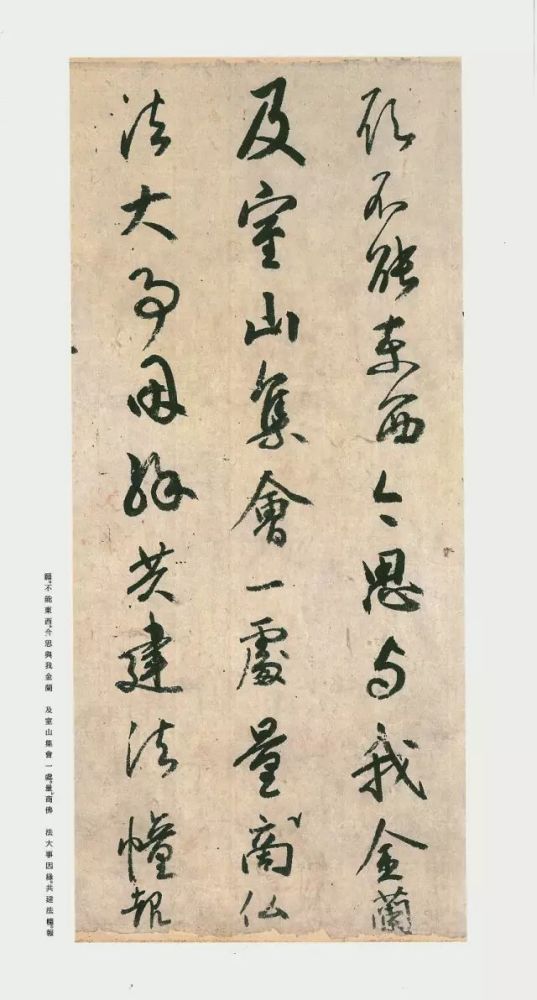 顾不能东西今思与我金蘭
及室山集會一處量商仏
法大事因緣共建法幢報
願不能東西今思與我金蘭　及室山集會一處量商佛　法大事因緣共建法幢報